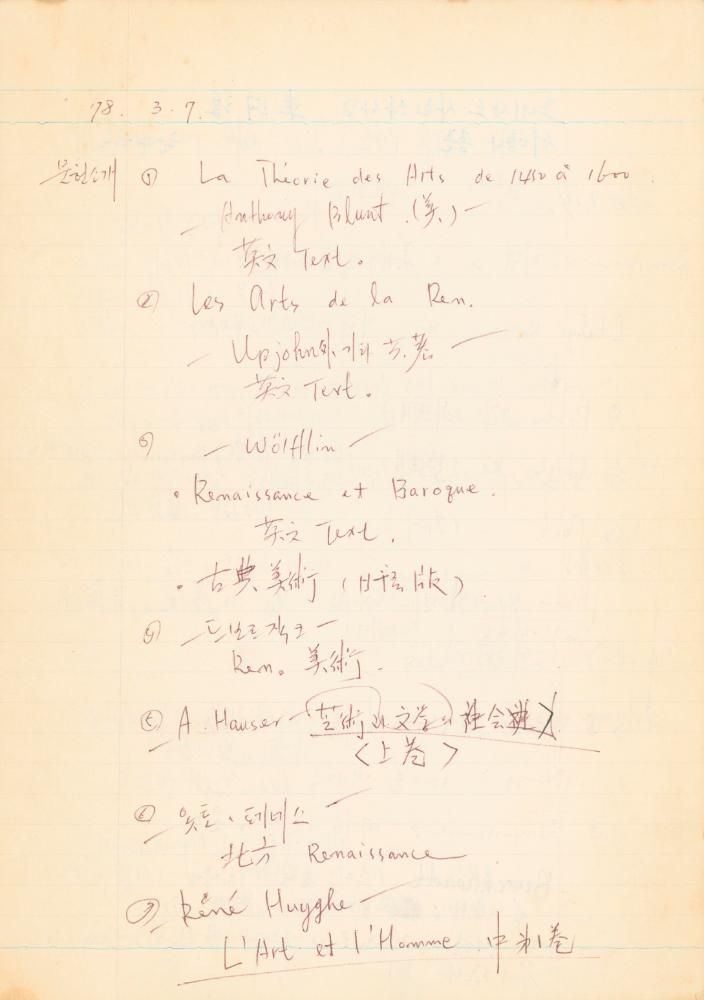 78. 3. 7.
문헌소개 ① La Théorie des Arts de 1450 à 1600.
Anthony Blunt.(英)
英文 Text.
② Les Arts de la Ren.
Upjohn外 共著
英文 Text.
③ Wölfflin
• Renaissance et Baroque.
英文 Text.
• 古典美術 (日語版).
④ 드보르작크
Ren. 美術.
⑤ A. Hauser 芸術과 文学의 社会
<上巻>
⑥ 베네스
北方 Renaissance
⑦ René Huyghe
L'Art et l'Homme 中 第1巻